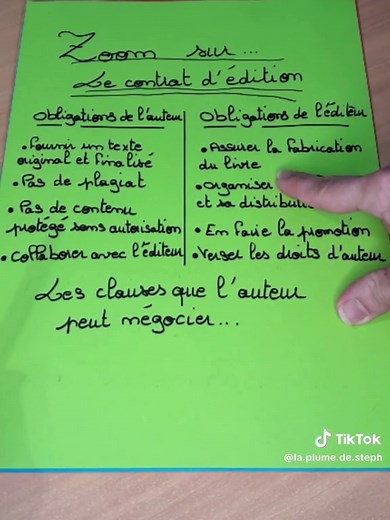 Zoom sur...
Le contrat d'édition
Obligations de l'auteur
• Fournir un texte
original et finalisé
• Pas de plagiat
• Pas de contenu
protégé sans autorisation
• Collaborer avec l'éditeur
Obligations de l'éditeur
• Assurer la fabrication
du livre
• Organiser
et sa
• En faire la promotion
• Verser les droits d'auteur
Les clauses que l'auteur
peut négocier...
TikTok
@la.plume.de.steph